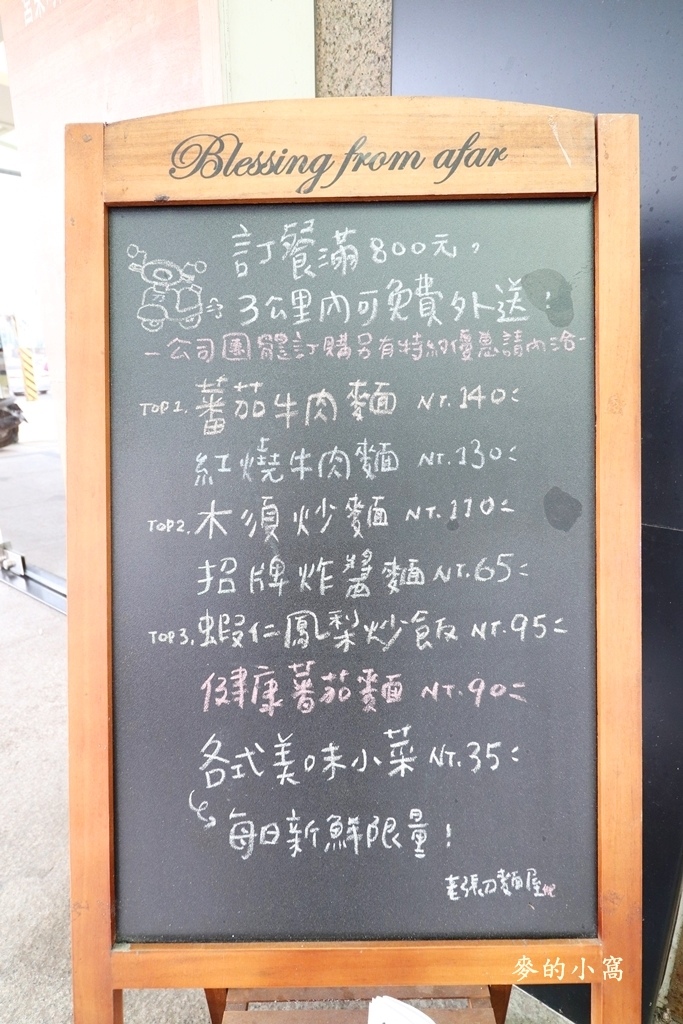 Blessing from afar
訂餐滿800元,
3公里內可免費外送!
-公司團體訂購另有特約優惠請內洽-
TOP1. 蕃茄牛肉麵 NT.140
紅燒牛肉麵 NT.130
TOP2. 木須炒麵 NT.110
招牌炸醬麵 NT.65
TOP3. 蝦仁鳳梨炒飯 NT.95
健康蕃茄麵 NT.90
各式美味小菜 NT.35
每日新鮮限量!
老張刀麵屋
麥的小窩